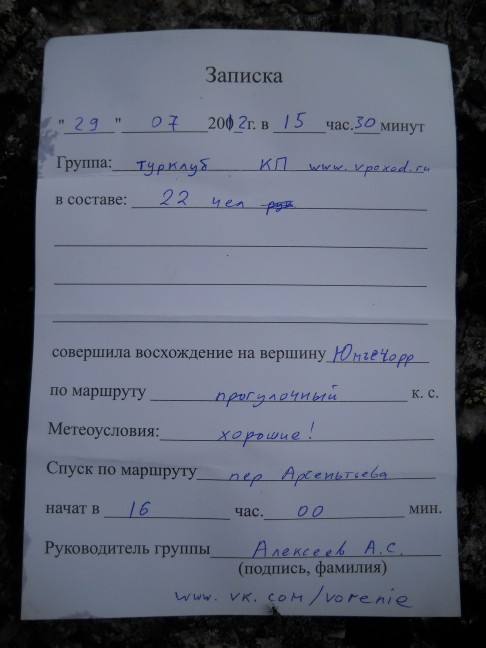 Записка
"29" 07 2012г. в 15 час. 30 минут
Группа: турклуб КП www.vpoxod.ru
в составе: 22 чел
совершила восхождение на вершину Юмъечорр
по маршруту прогулочный к. с.
Метеоусловия: хорошие!
Спуск по маршруту пер Арсеньева
начат в 16 час. 00 мин.
Руководитель группы Алексеев А.С.
(подпись, фамилия)
www.vk.com/vorenie